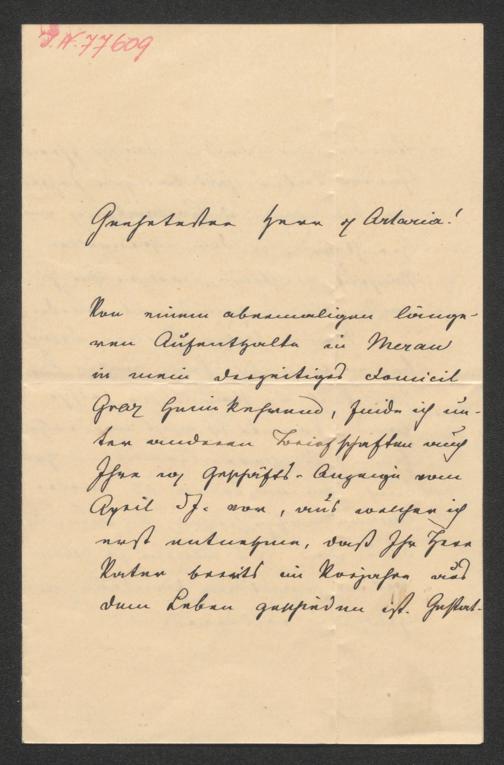 I.N. 77609
Geehrtester Herr v Artaria!
Von einem abermaligen länge-
ren Aufenthalte in Meran
in mein derzeitiges Domicil
Graz heimkehrend, finde ich un-
ter anderen Briefschaften auch
Ihre Geschäfts-Anzeige vom
April dJ. vor, aus welcher ich
erst entnehme, daß Ihr Herr
Vater bereits im Vorjahre aus
dem Leben geschieden ist. Gestat-